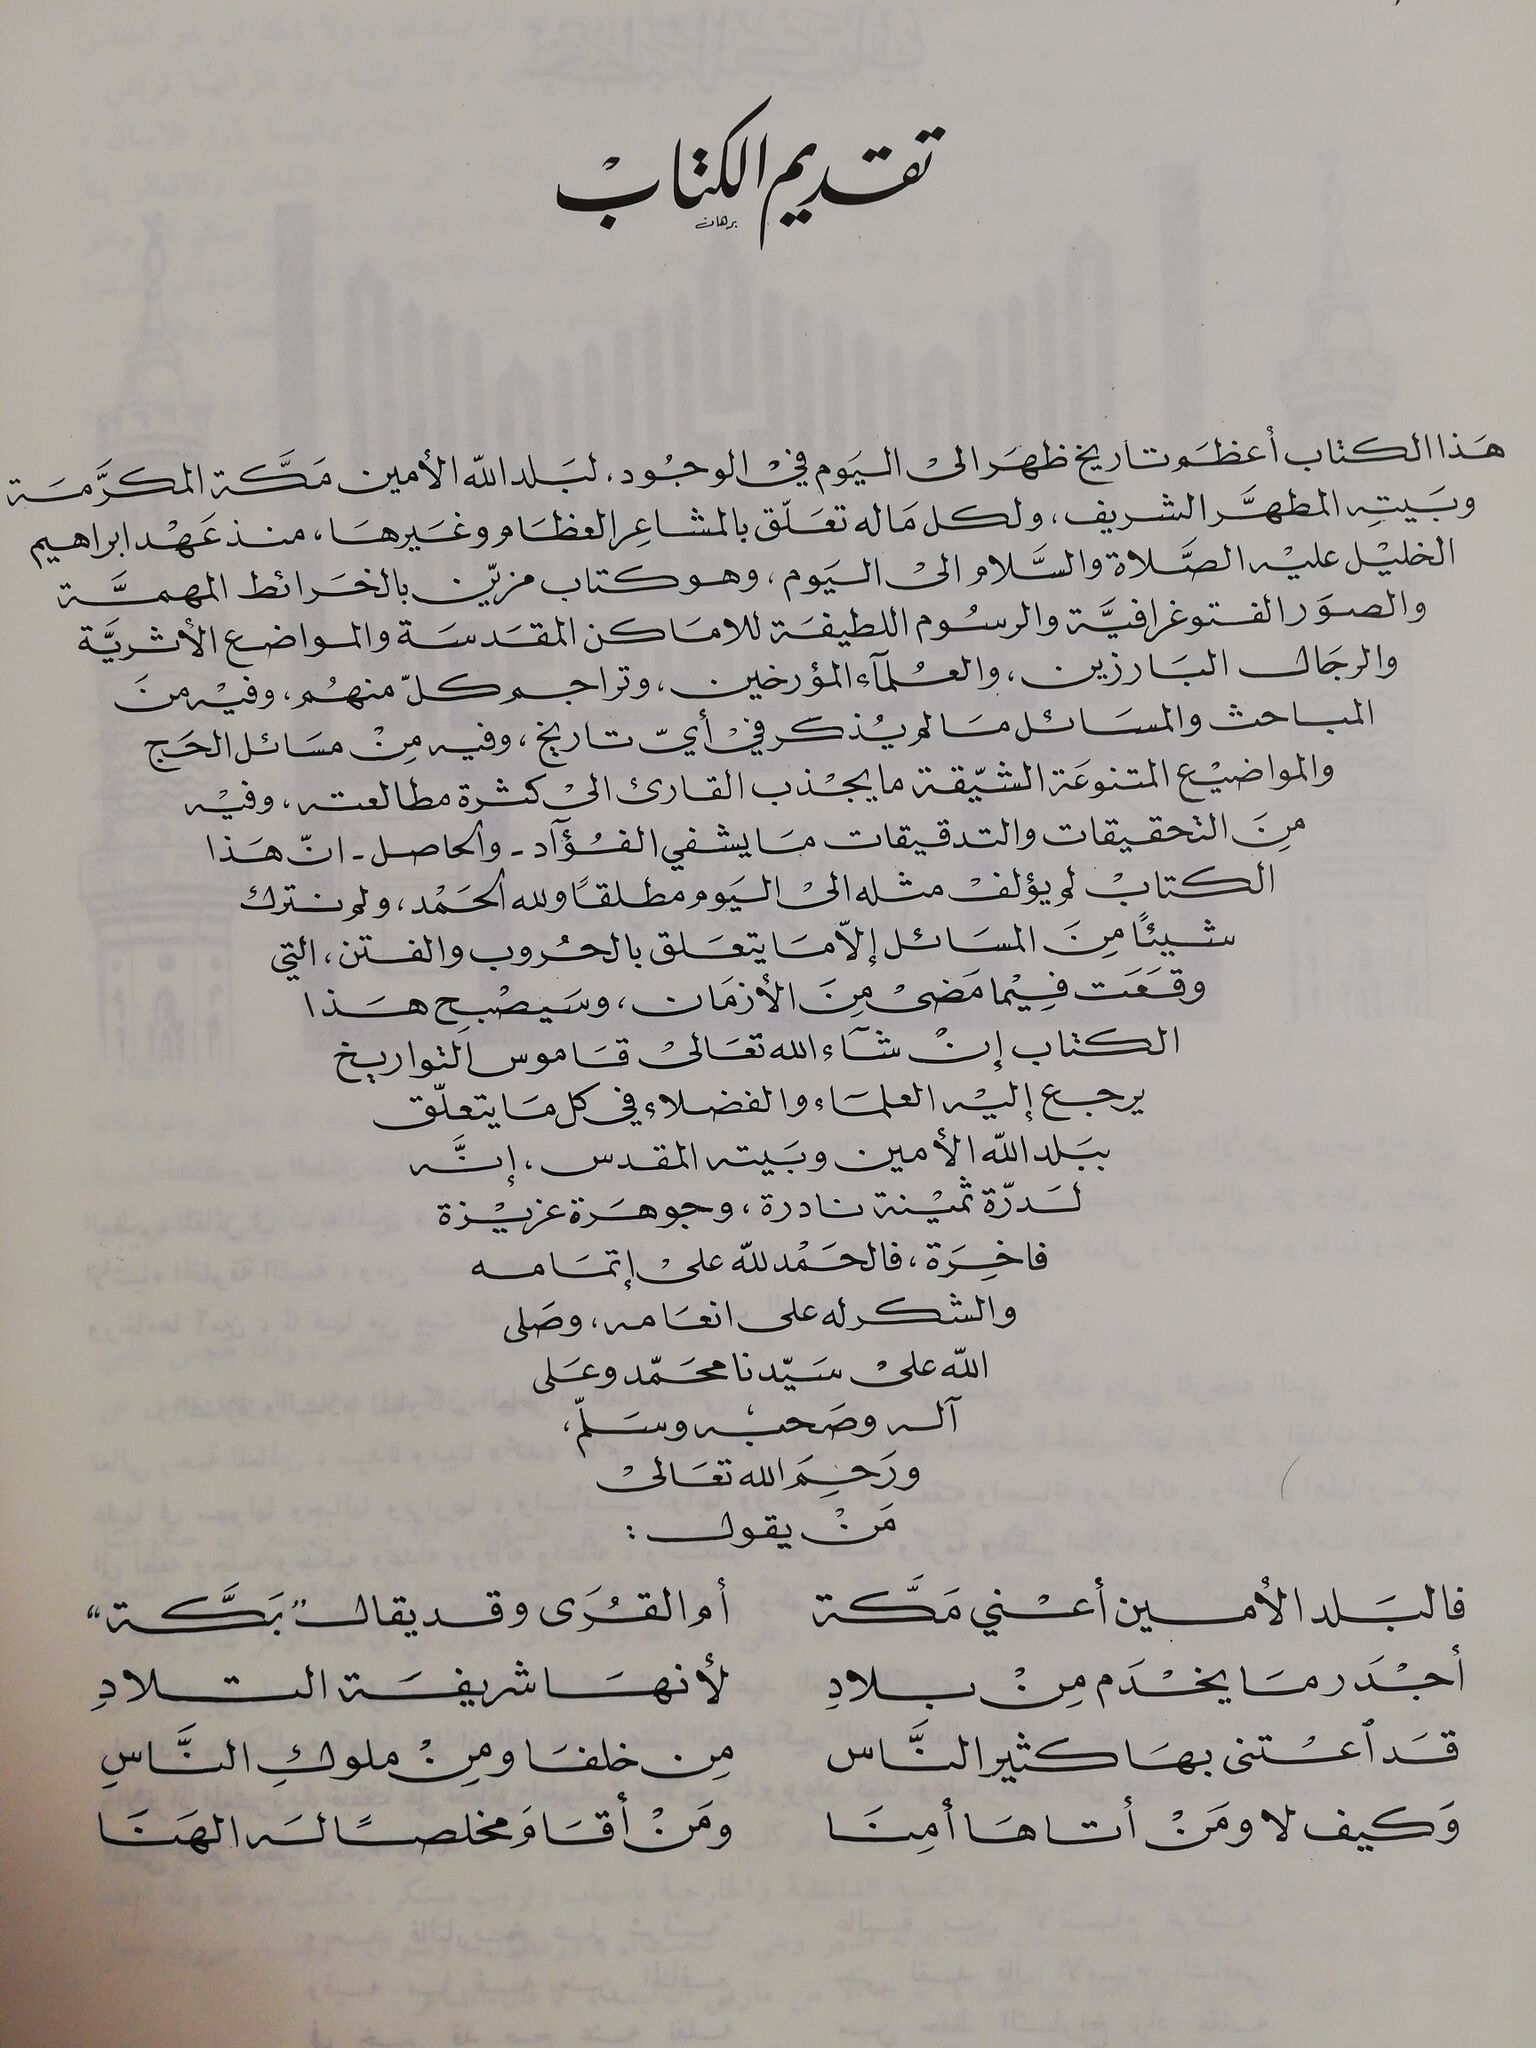 تقديم الكتاب
برهان
هَذا الكتاب أعظَم تاريخ ظهَر الىْ اليَوم فيْ الوجُود، لبَلد اللّه الأمين مَكَّة المكرَّمَة
وبَيتِه المطهَّر الشريف، ولكل مَاله تعَلّق بالمشاعِر العظَام وغَيرهَا، منذ عَهْد ابراهيم
الخليْل عليْه الصَّلاة والسَّلام الىْ اليَوم، وهو كتاب مزيّن بالخرَائط المهمَّة
والصوَر الفتوغرافيَّة والرسُوم اللطيفَة للاماكن المقدَسَة والمواضع الأثريَّة
والرجَال البَارزين، والعُلمآء المؤرخين، وتراجم كلّ منهُم، وفيْه منَ
المباحث والمسَائل مَا لم يُذكر فيْ أيّ تاريخ، وفيه مِنْ مسَائل الحَج
والمواضيْع المتنوعَة الشيّقة ما يجْذب القارئ الىْ كثرة مطالعته، وفيْه
مِنَ التحقيقات والتدقيقات مَا يشفي الفُؤآد - والحاصل - انّ هَذا
الكتابْ لم يؤلفْ مثله الىْ اليَوم مطلقًا ولله الحَمْد، ولم نترك
شيئًا مِنَ المسَائل إلاّ مَا يتعَلق بالحُروب والفتن، التي
وقعَت فِيْما مَضىْ مِنَ الأزمَان، وسَيصْبح هَذا
الكتاب إنْ شآء الله تعَالىْ قاموس التواريخ
يرجع إليْه العلمَاء والفضلاء في كل مَا يتعلّق
ببَلد اللّه الأمين وبَيته المقدس، إنَّه
لَدرّة ثميْنة نادرة، وجوهَرة عزيْزة
فاخِرَة، فالحَمْد للّه علىْ إتمَامه
والشكر له على انعَامه، وصَلى
اللّه علىْ سَيّدنا محمَّد وعَلى
آله وصَحبه وسَلّم،
ورَحِمَ الله تعَالىْ
مَنْ يقول :
فالبَلد الأمين أعْني مَكَّة    أم القُرَى وقد يقال "بَكَّة"
أجْدَر مَا يخْدَم مِنْ بلادِ    لأنهَا شريفَة التلادِ
قَد اعْتنى بهَا كثير النَّاس    مِن خلفَا ومِنْ ملوكِ النَّاسِ
وَكيف لا ومَنْ أتاهَا أمِنَا    ومَنْ أقامَ مخلصًا لَه الهَنَا